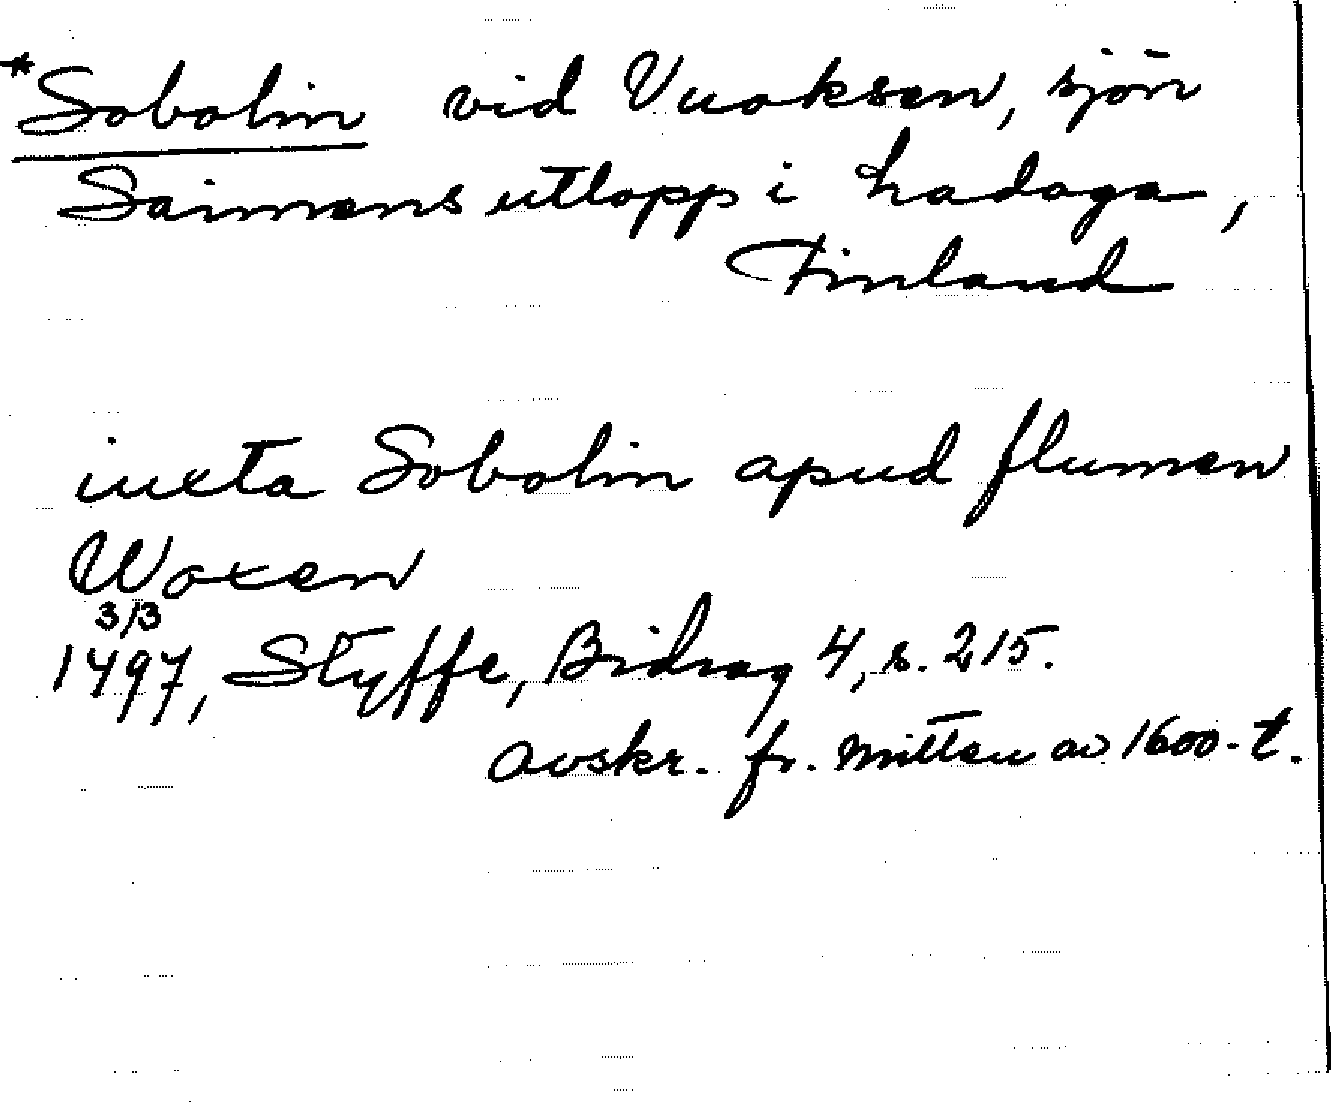 *Sobolin vid Vuoksen, sjön
Saimens utlopp i Ladoga,
Finland
iuxta Sobolin apud flumen
Woxen
3/3
1497, Styffe, Bidrag 4, s. 215.
avskr. fr. mitten av 1600-t.